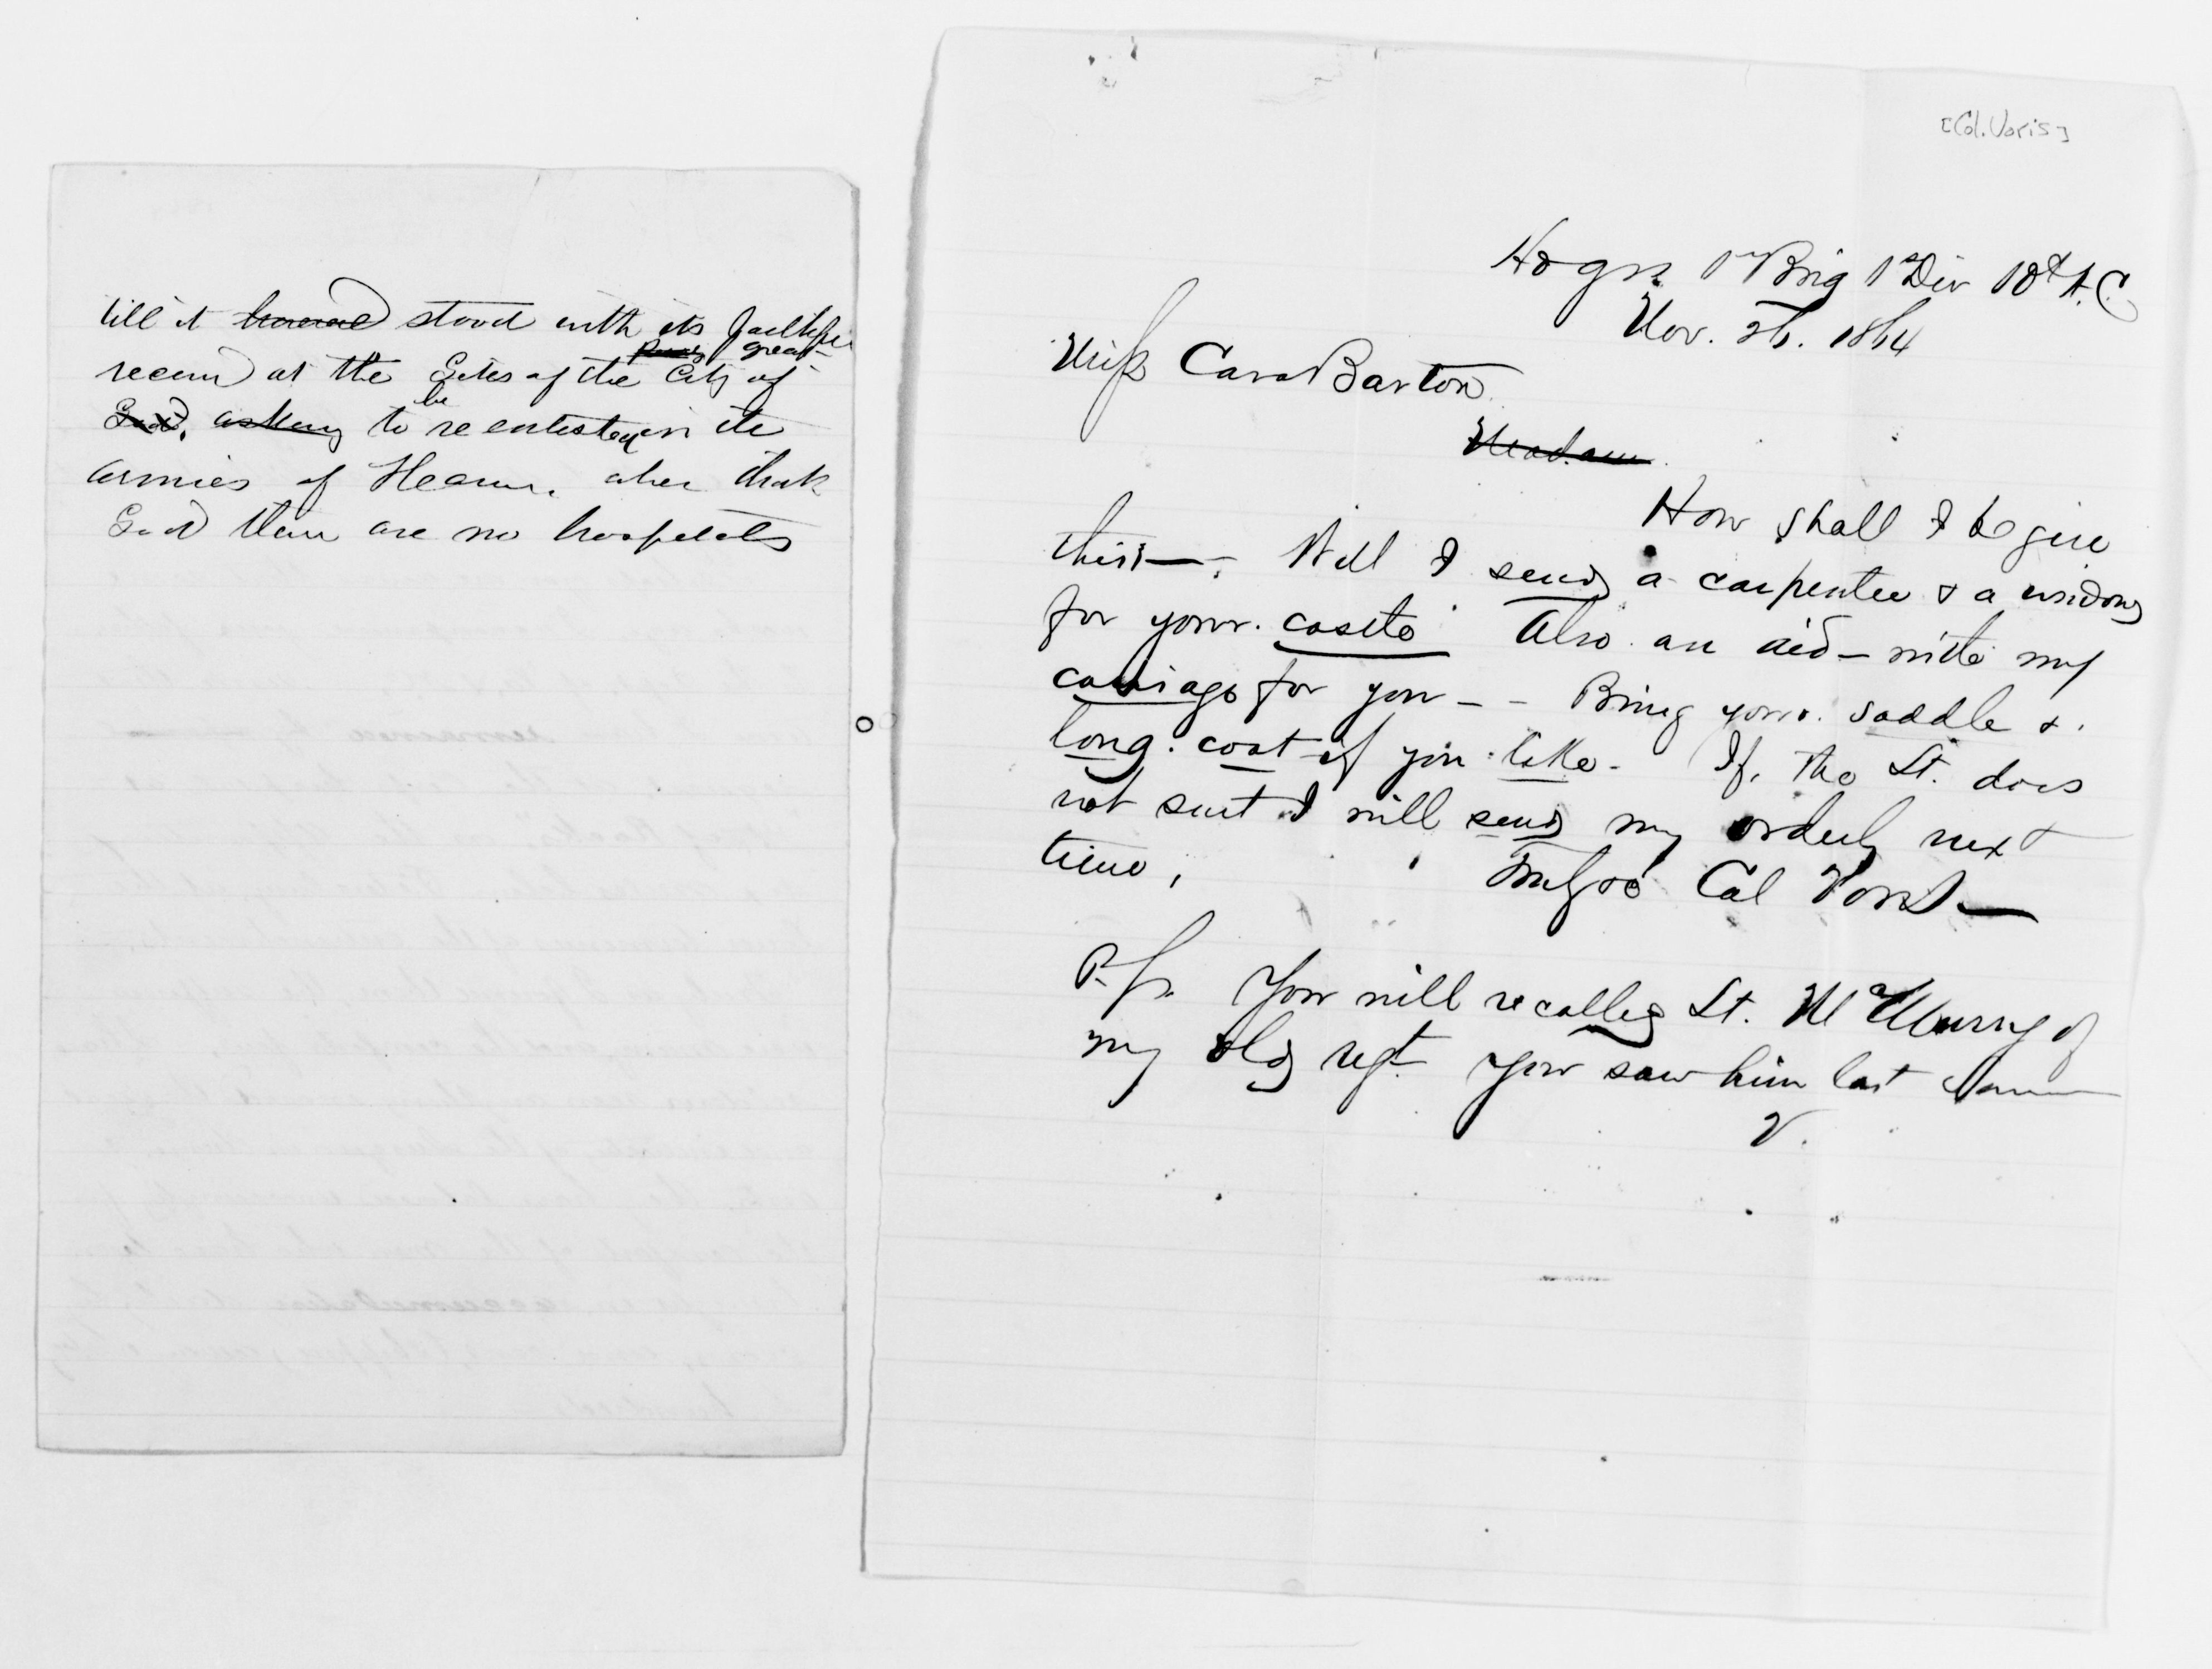 till it stood with its faithful
great
record at the Gates of the City of
be
God, asking to reenlisted in the
armies of Heaven. when thank
God there are no hospitals
[Col. Voris]
Hdqrs 1st Brig 1st Div 10th A.C.
Nov. 26. 1864
Miss Cara Barton.
Madam
How shall I begin
this—. Well I send a carpenter & a window
for your castle Also an aid — with my
carriage for you — – Bring your saddle &
long coat if you like — If the Lt. does
not suit I will send my orderly next
time, Col Voris —
P.S. You will recollect Lt. McMurry of
my old regt. You saw him last
V.